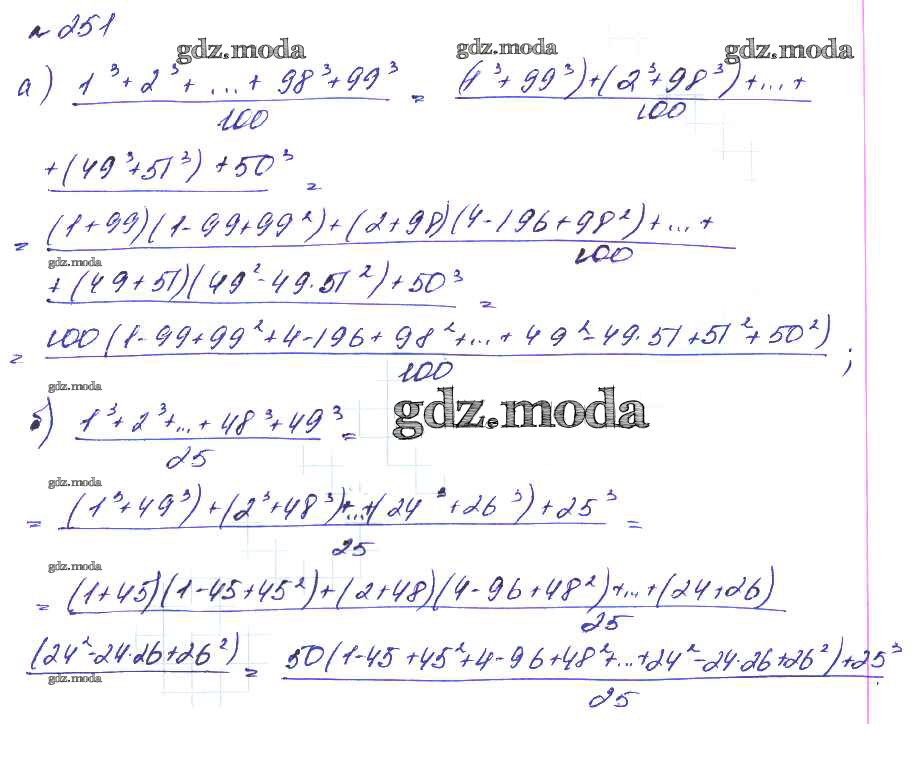 № 251
gdz.moda gdz.moda
а) (1³+2³+...+98³+99³)/100 = ((1³+99³)+(2³+98³)+...+
+(49³+51³)+50³)/100 =
= ((1+99)(1-99+99²)+(2+98)(4-196+98²)+...+
gdz.moda
+(49+51)(49²-49·51²)+50³)/100 =
= 100(1-99+99²+4-196+98²+...+49²-49·51+51²+50²)/100 ;
gdz.moda
б) (1³+2³+...+48³+49³)/25 =
gdz.moda
gdz.moda
= ((1³+49³)+(2³+48³)+...+(24³+26³)+25³)/25 =
gdz.moda
= ((1+45)(1-45+45²)+(2+48)(4-96+48²)+...+(24+26)
(24²-24·26+26²))/25 = (50(1-45+45²+4-96+48²+...+24²-24·26+26²)+25³)/25 .
gdz.moda